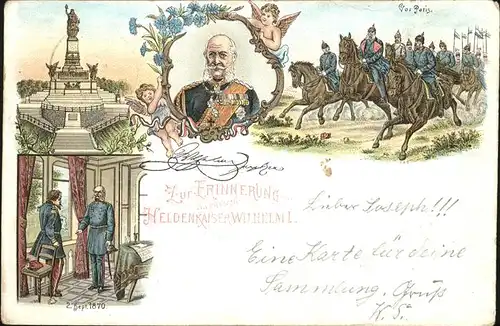 Vor Paris.
Zur ERINNERUNG
HELDENKAISER WILHELM I.
2. Sept. 1870.
Lieber Joseph!!!
Eine Karte für deine
Sammlung. Gruß
K. S.